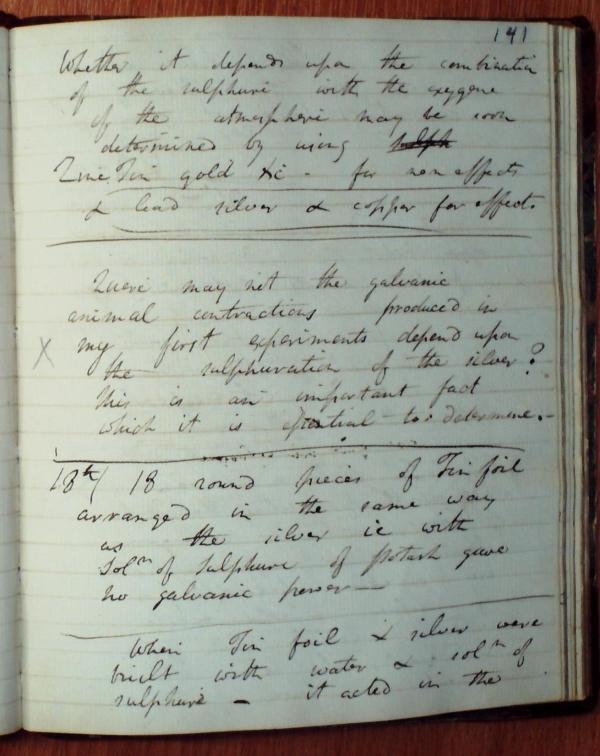 141
Whether it depends upon the combination
of the sulphure with the oxygene
of the atmosphere may be soon
determined by using sulph
Zinc, Tin gold &c - for non effects
& lead silver & copper for effect.
Quere may not the galvanic
animal contractions produced in
X my first experiments depend upon
the sulphuration of the silver?
this is an important fact
which it is essential to determine.-
18th/ 18 round pieces of Tin foil
arranged in the same way
as the silver ie with
Soln of sulphure of potash gave
no galvanic power —
When Tin foil & silver were
built with water & soln of
sulphure - it acted in the